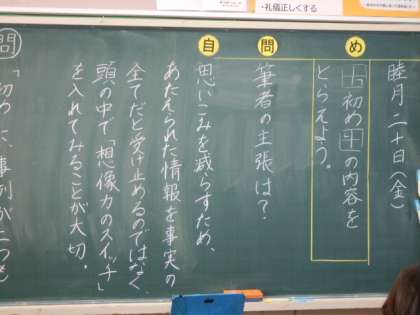 ・礼儀正しくする
睦月二十日(金)
め
初め の内容を
とらえよう。
問
筆者の主張は?
自
思いこみを減らすため、
あたえられた情報を事実の
全てだと受け止めるのではなく、
頭の中で「想像力のスイッチ」
を入れてみることが大切。
問
「初め 事例が二つ